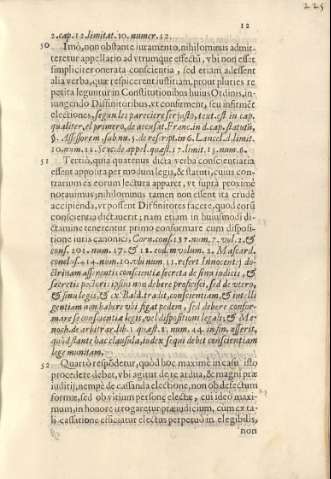 225
12
2. cap. 12. limitat. 10. numer. 12.
50 Imò, non obstante iuramento, nihilominus admit-
teretur appellatio ad vtrumque effectũ, vbi non esset
simpliciter onerata conscientia, sed etiam adessent
alia verba, quæ respicerent iustitiam, prout pluries re
petita leguntur in Constitutionibus huius Ordinis, in
iungendo Diffinitoribus, vt confirment, seu infirmẽt
electiones, segun les pareciere ser justo, text. est in cap.
qualiter, el primero, de accusat. Franc. in d. cap. statutũ,
§. Assessorem, sub nu. 5. de rescript. in 6. Lancel. d. limit.
10. num. 12. Scac. de appel. quæst. 17. limit. 15. num. 6.
51 Tertiò, quia quatenus dicta verba conscientiam
essent apposita per modum legis, & stanti, cuius con-
trarium ex eorum lectura apparet, vt suprà proximè
notauimus; nihilominus tamen non essent ita crudè
accipienda, vt possent Diffinitores facere, quod eorũ
conscientia dictauerit; nam etiam in huiusmodi di-
ctamine tenerentur primo conformare cum disposi-
tione iuris canonici, Corn. cons. 137. num. 7. vol. 2. &
cons. 201. num. 17. & 12. eod. volum. 2. Mascard.
concl. 1214. num. 10.
trinam assirentis conscientiæ secreta de sinu iudicis, &
secretis pectoris ipsius non debere proferri, sed de vero,
& sinu legis, & ex Bald. tradit, conscientiam, & intelli
gentiam non habere vbi figat pedem, sed debere confor-
mare se conscientiæ legis, vel dispositioni legali; & Me-
noch. de arbitrar. lib. 1. quæst. 1. num. 44. in fin. asserit,
quòd stante hac clausula, iudex sequi debit conscientiam
lege munitam.
52 Quartò respõdetur, quòd hoc maximè in casu isto
procedere debet, vbi agitur de re ardua, & magni præ
iuditij, nempè de cassanda electione, non ob defectum
formæ, sed ob vitium personæ electæ, cui ideò maxi-
mum, in honore irrogaretur præiudicium, cum ex ta-
li cassatione efficiatur electus perpetuò in elegibilis,
non